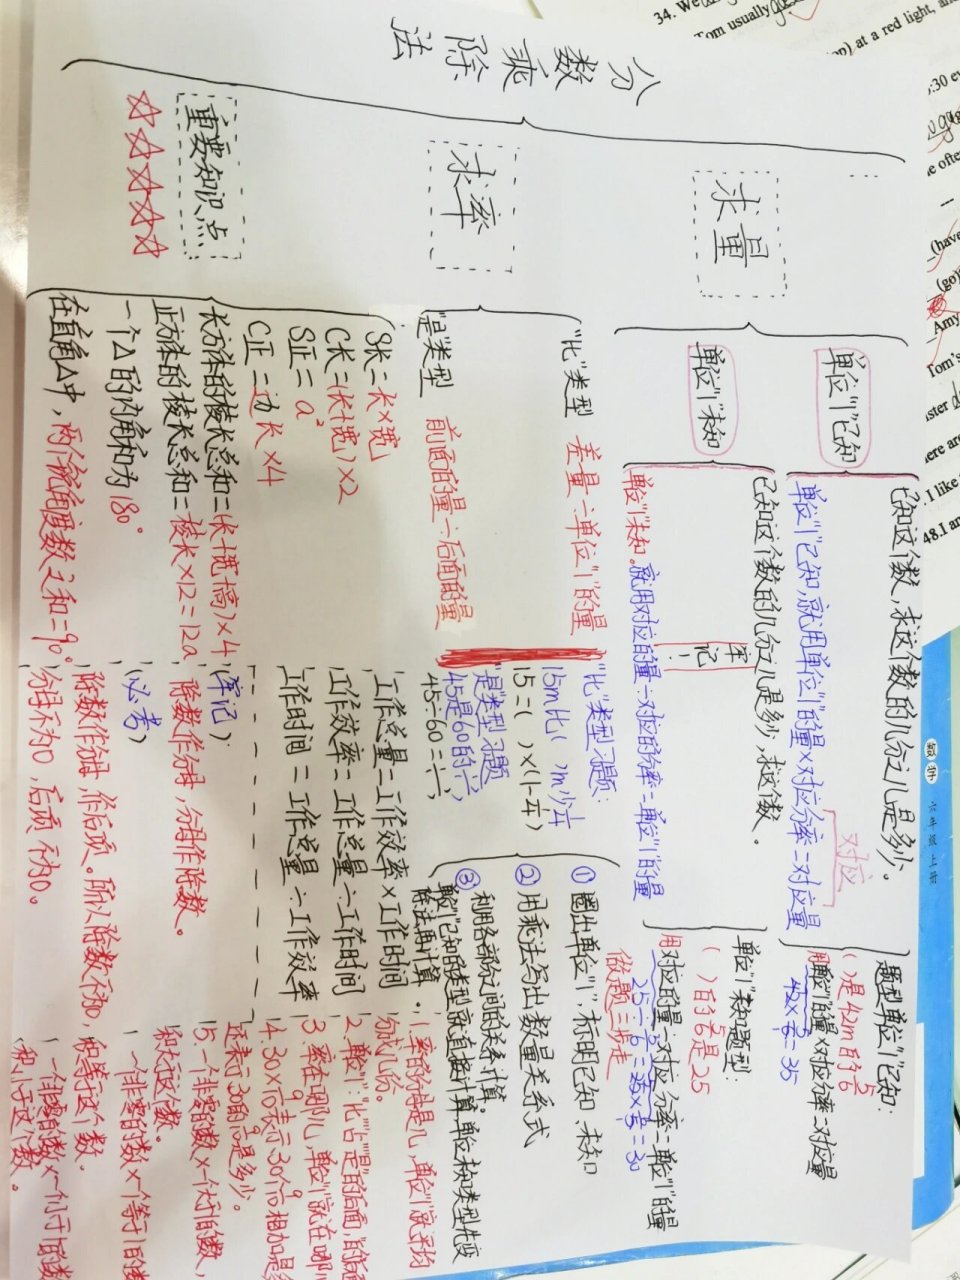 分数乘除法
求量
单位"1"已知
已知这个数,求这个数的几分之几是多少。
单位"1"已知,就用单位"1"的量×对应分率=对应量
对应
题型单位"1"已知:
( )是42m的5/6
用单位"1"的量×对应分率=对应量
42×5/6=35
单位"1"未知
已知这个数的几分之几是多少,求这个数。
牢记!
单位"1"未知。就用对应的量÷对应的分率=单位"1"的量
单位"1"未知题型:
( )的5/6是25
用对应的量÷对应分率=单位"1"的量
25÷5/6=25×6/5=30
做题三步走
① 圈出单位"1",标明已知、未知
② 用乘法写出数量关系式
③ 利用各部分之间的关系计算。
单位"1"已知的类型就直接计算,单位未知类型先变
除法再计算。
求率
"比"类型 差量÷单位"1"的量
"比"类型习题:
15m比( )m少
15=( )×(1-
"是"类型 前面的量÷后面的量
"是"类型习题
45是60的
45÷60=
重要知识点
☆☆☆☆
S长=长×宽
C长=(长+宽)×2
S正=a²
C正=边长×4
长方体的棱长总和=(长+宽+高)×4
正方体的棱长总和=棱长×12=12a
一个△的内角和为180°
在直角△中,两个锐角度数之和=90°
工作总量=工作效率×工作时间
工作效率=工作总量÷工作时间
工作时间=工作总量÷工作效率
(牢记):除数作分母,分母作除数。
(必考)
除数作分母,作后项。所以除数不为0,
分母不为0,后项不为0。
1.率的分母是几,单位"1"就平均
分成几份。
2.单位"1":"比""占""是"的后面,"的"前面
3.率在哪儿,单位"1"就在哪儿
4.30×
还表示30的 是多少。
5.一个非零的数×一个大于1的数,
积大于这个数。
一个非零的数×一个等于1的数
积等于这个数。
一个非零的数×一个小于1的数
积小于这个数。
数学 六年级 上册
34. We
Tom usually
at a red light, and
:30
ofte
(have
(go)
Amy
Tom's
ster d
ere are
I like
48.I am